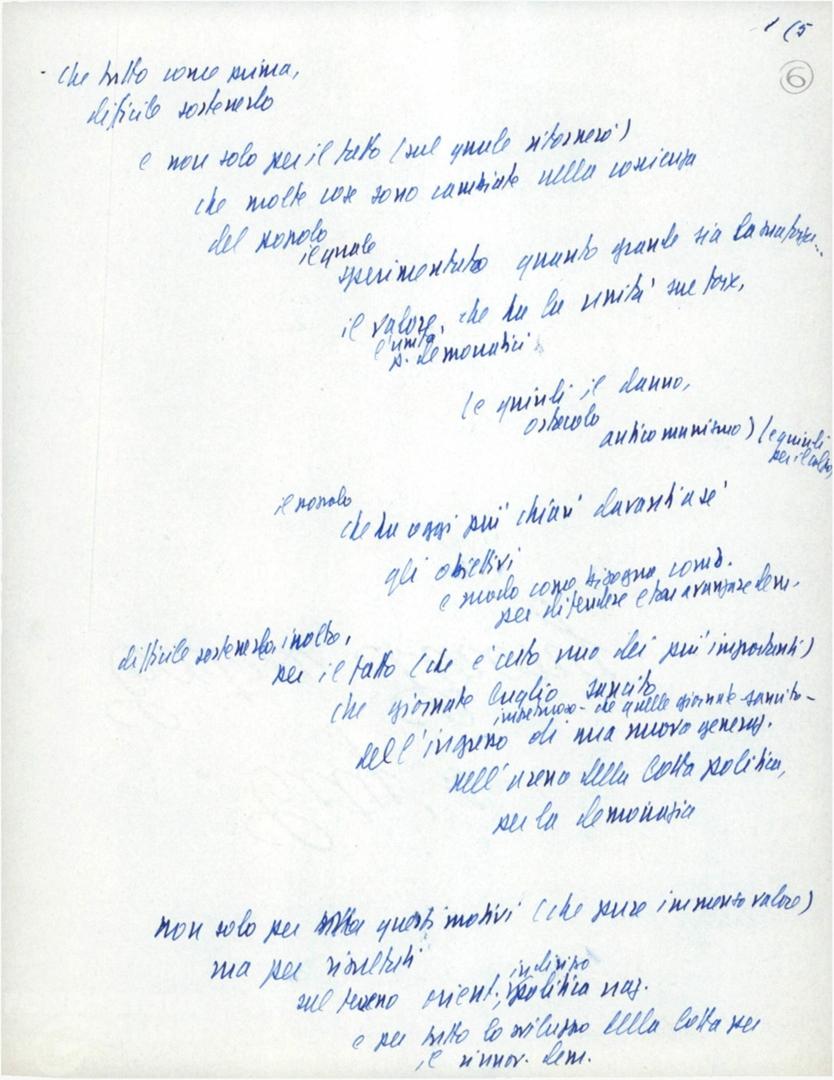 1 (5
6
- che tutto come prima,
difficile sostenerlo
e non solo per il fatto (sul quale ritornerò)
che molte cose sono cambiate nella coscienza
del popolo
il quale
sperimentato quanto grande sia la sua forza...
il valore, che ha la unità sue forze,
l'unità
p. democratici
(e quindi il danno,
ostacolo
anticomunismo) (e quindi
per il
il popolo
che ha oggi più chiari davanti a sé
gli obiettivi
e modo come bisogna comb.
per difendere e far avanzare dem.
difficile sostenerlo, inoltre,
per il fatto (che è certo uno dei più importanti)
che giornate luglio sancito
ingresso - che quelle giornate sancito -
dell'ingresso di una nuova generaz.
nell'arena della lotta politica,
per la democrazia
non solo per questi motivi (che pure immenso valore)
ma per risultati
sul terreno orient., politica naz.
indirizzo
e per tutto lo sviluppo della lotta per
il rinnov. dem.